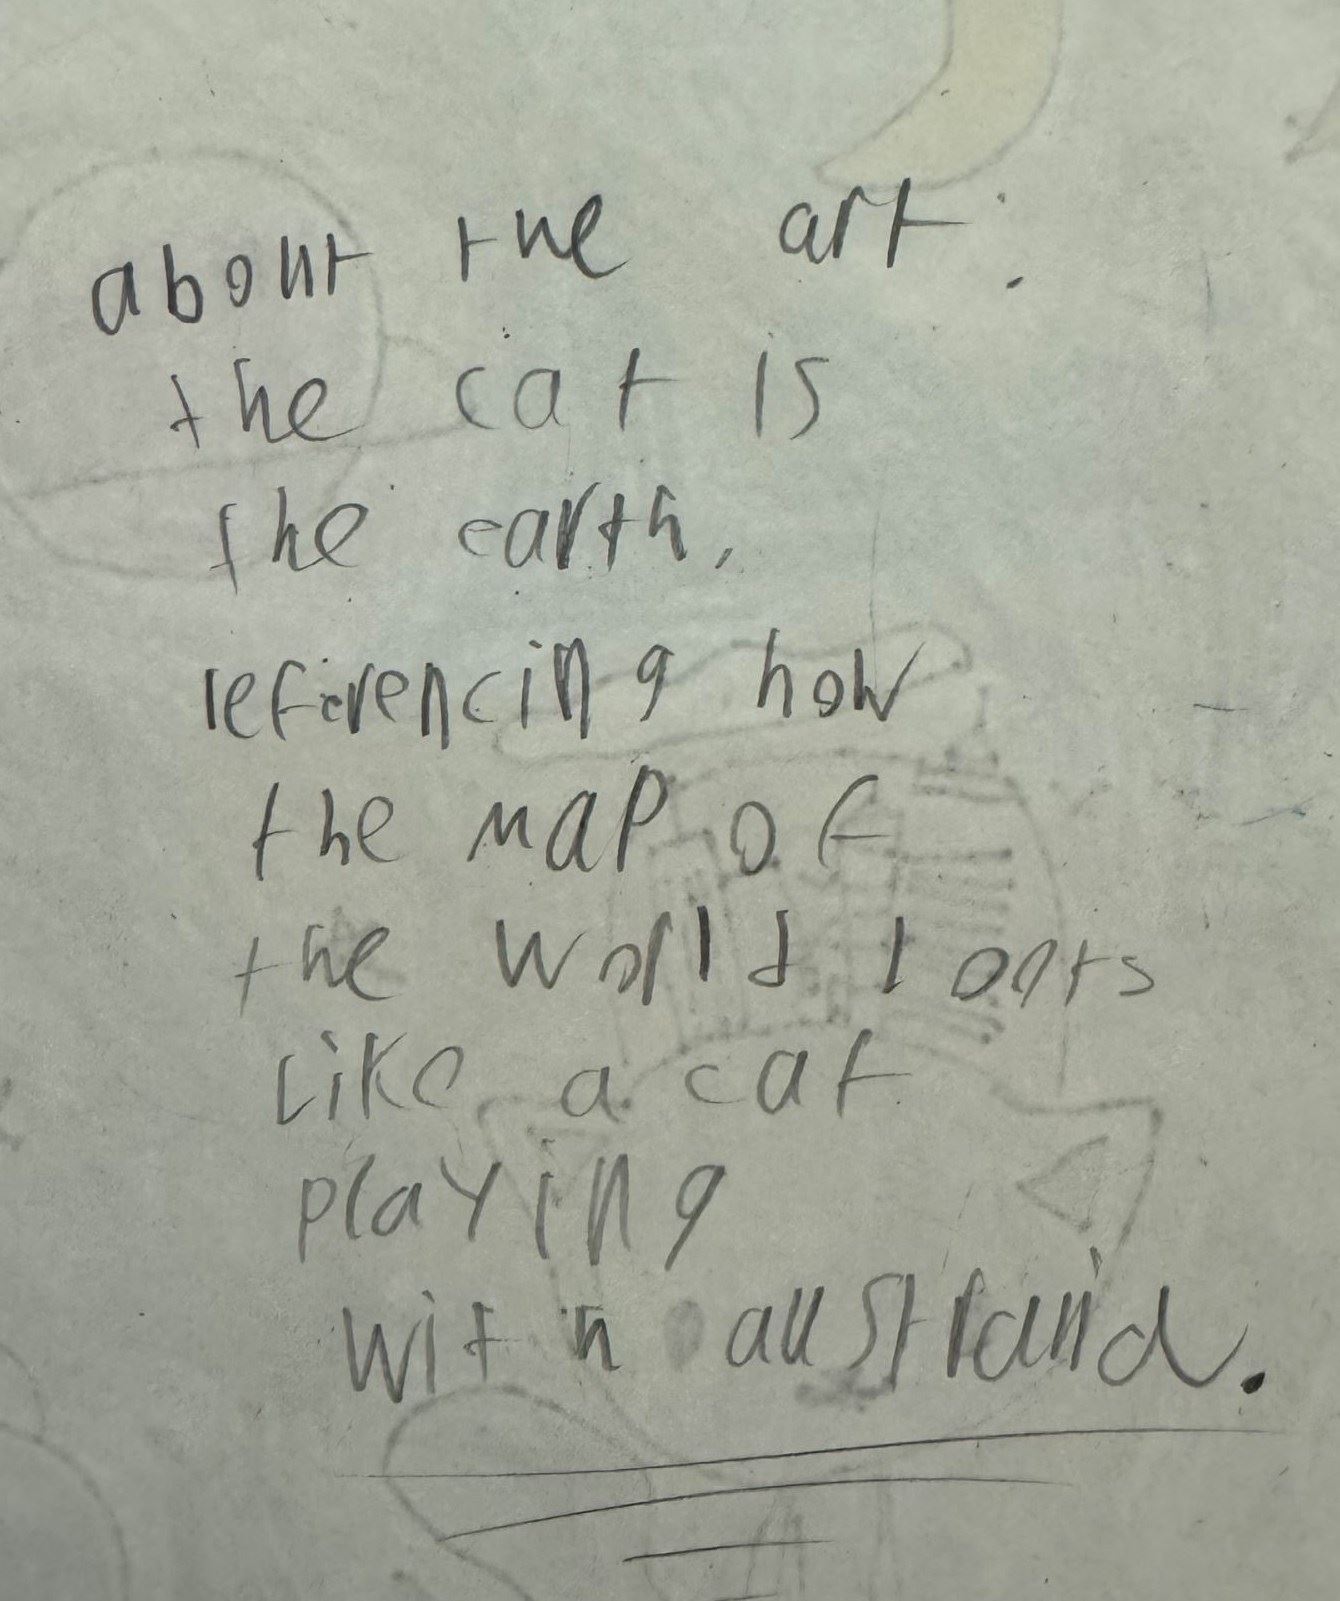 about the art:
the cat is
the earth,
referencing how
the map of
the world looks
like a cat
playing
with australia.